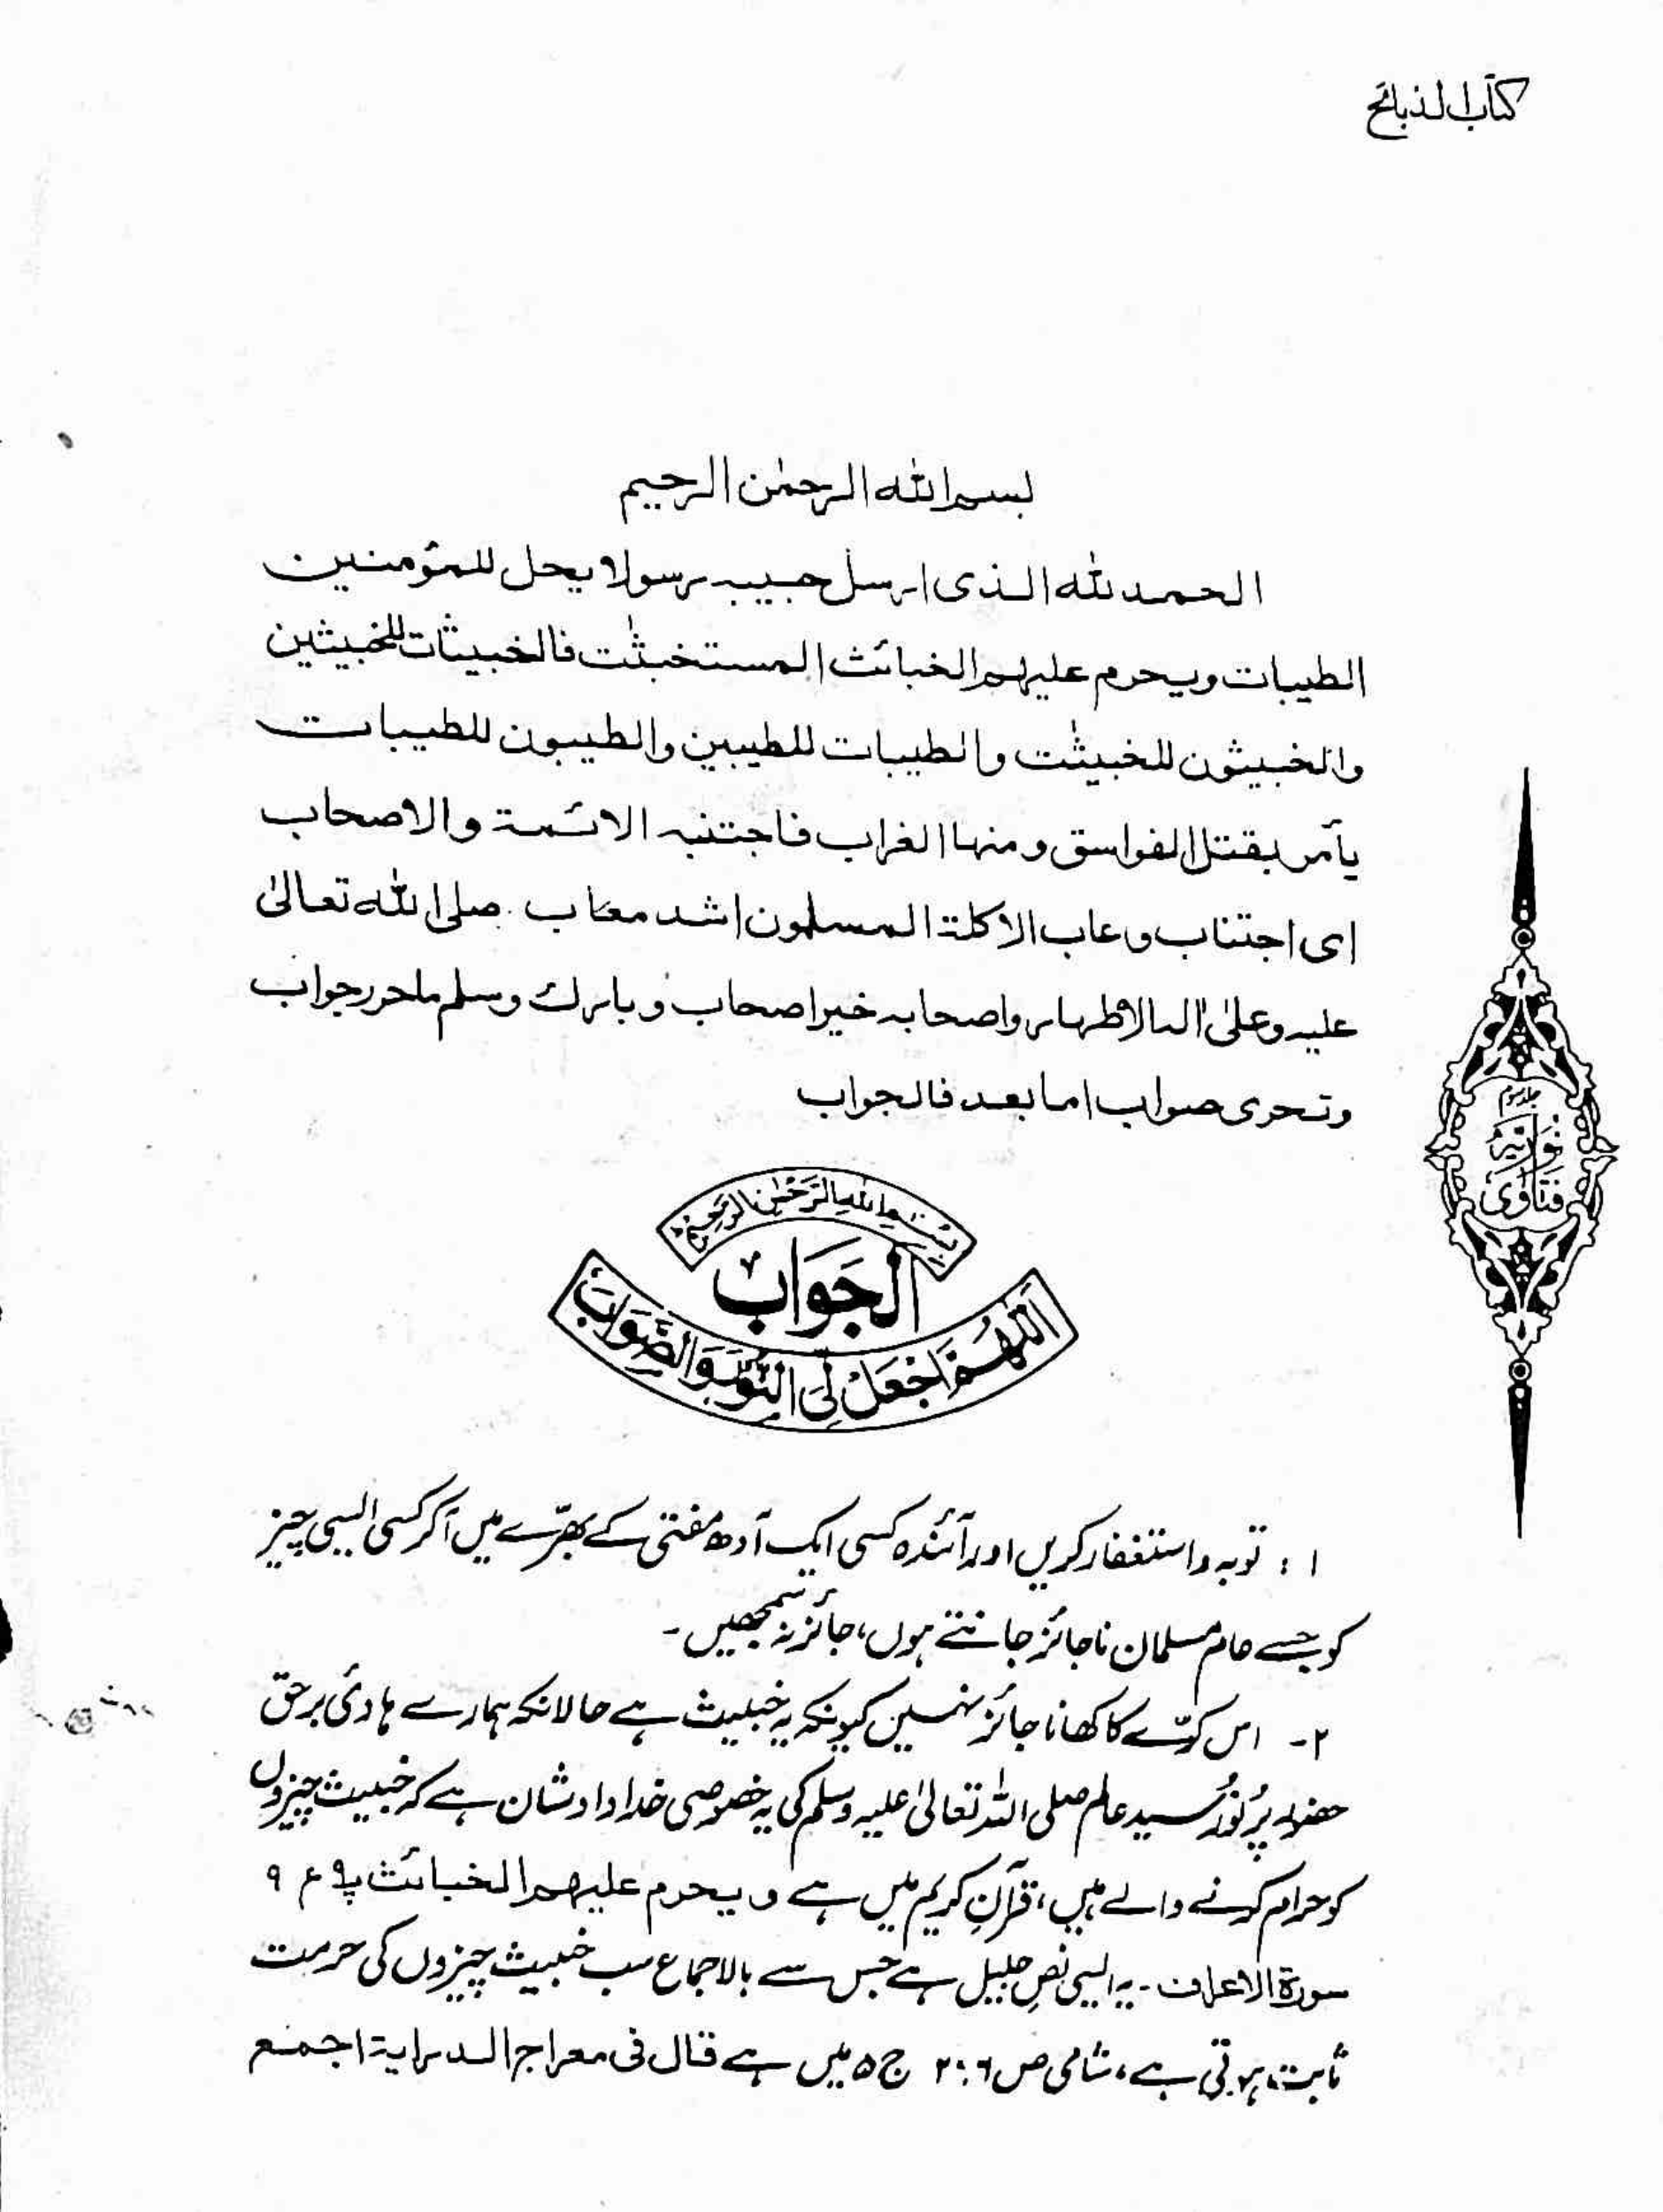 کتاب الذبائح
بسم الله الرحمٰن الرحيم
الحمد لله الذى ارسل حبيبه رسولا يحل للمؤمنين
الطيبات ويحرم عليهم الخبائث المستخبثٰت فالخبيثات للخبيثين
والخبيثون للخبيثٰت والطيبات للطيبين والطيبون للطيبات
يأمر بقتل الفواسق ومنها الغراب فاجتنبه الائمة والاصحاب
اى اجتناب وعاب الاكلة المسلمون اشد معاب۔ صلى الله تعالىٰ
عليه وعلىٰ اٰله الاطهار واصحابه خير اصحاب وبارك وسلم ماحرر جواب
وتحرى صواب اما بعد فالجواب
جلد سوم
فتاویٰ نوریہ
بِسْمِ اللهِ الرَّحْمٰنِ الرَّحِيْمِ
اَلْجَوَابُ
اَللّٰهُمَّ اجْعَلْ لِيَ النُّوْرَ وَالصَّوَابَ
۱ : توبہ واستغفار کریں اور آئندہ کسی ایک آدھ مفتی کے بھرّے میں آکر کسی ایسی چیز
کو جسے عام مسلمان ناجائز جانتے ہوں، جائز نہ سمجھیں۔
۲۔ اس کوّے کا کھانا جائز نہیں کیونکہ یہ خبیث ہے حالانکہ ہمارے ہادیٔ برحق
حضور پُرنُور سید عالم صلی اللہ تعالیٰ علیہ وسلم کی یہ خصوصی خداداد شان ہے کہ خبیث چیزوں
کو حرام کرنے والے ہیں، قرآنِ کریم میں ہے و يحرم عليهم الخبائث پ۹ ع ۹
سورۃ الاعراف ۔ یہ ایسی نصِ جلیل ہے جس سے بالاجماع سب خبیث چیزوں کی حرمت
ثابت ہوتی ہے، شامی ص ۲۰۶ ج ۵ میں ہے قال فى معراج الدراية اجمع